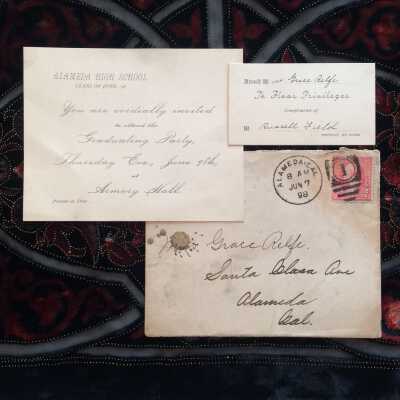 ALAMEDA HIGH SCHOOL
CLASS OF JUNE, 98
You are cordially invited
to attend the
Graduating Party,
Thursday Eve, June 9th,
at
Armory Hall
Present at Door
Admit M Grace Relfe
To Floor Privileges
Compliments of
M Russell Field
PRESENT AT DOOR
ALAMEDA, CAL.
8 AM
JUN 7
98
1
Grace Relfe.
Santa Clara Ave
Alameda
Cal.